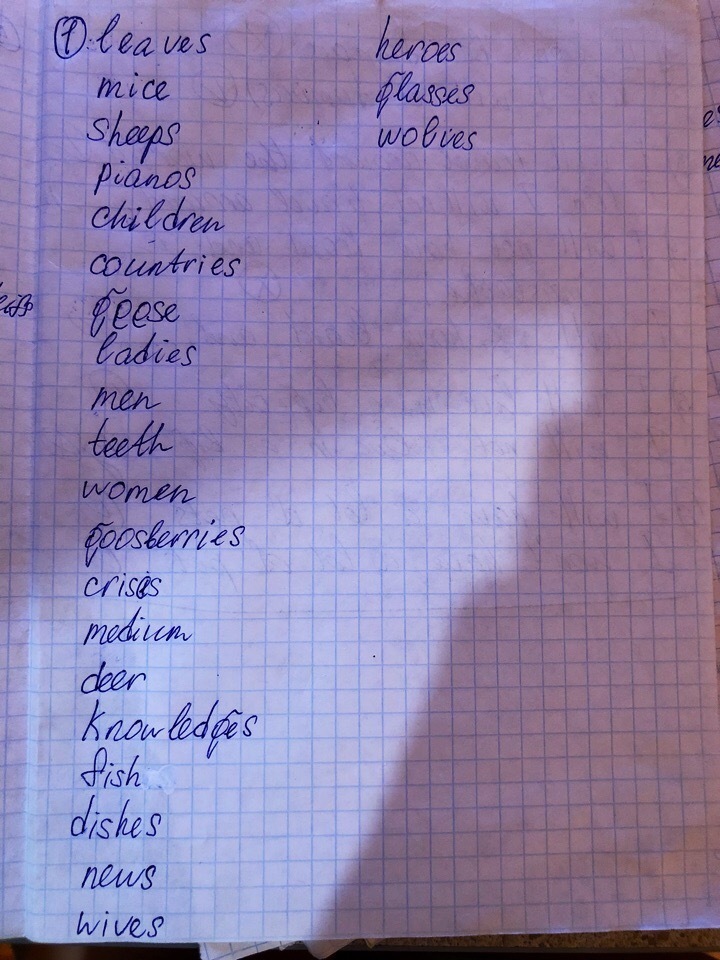 1. leaves
mice
sheeps
pianos
children
countries
geese
ladies
men
teeth
women
goosberries
crisis
medium
deer
knowledges
fish
dishes
news
wives
heroes
glasses
wolives